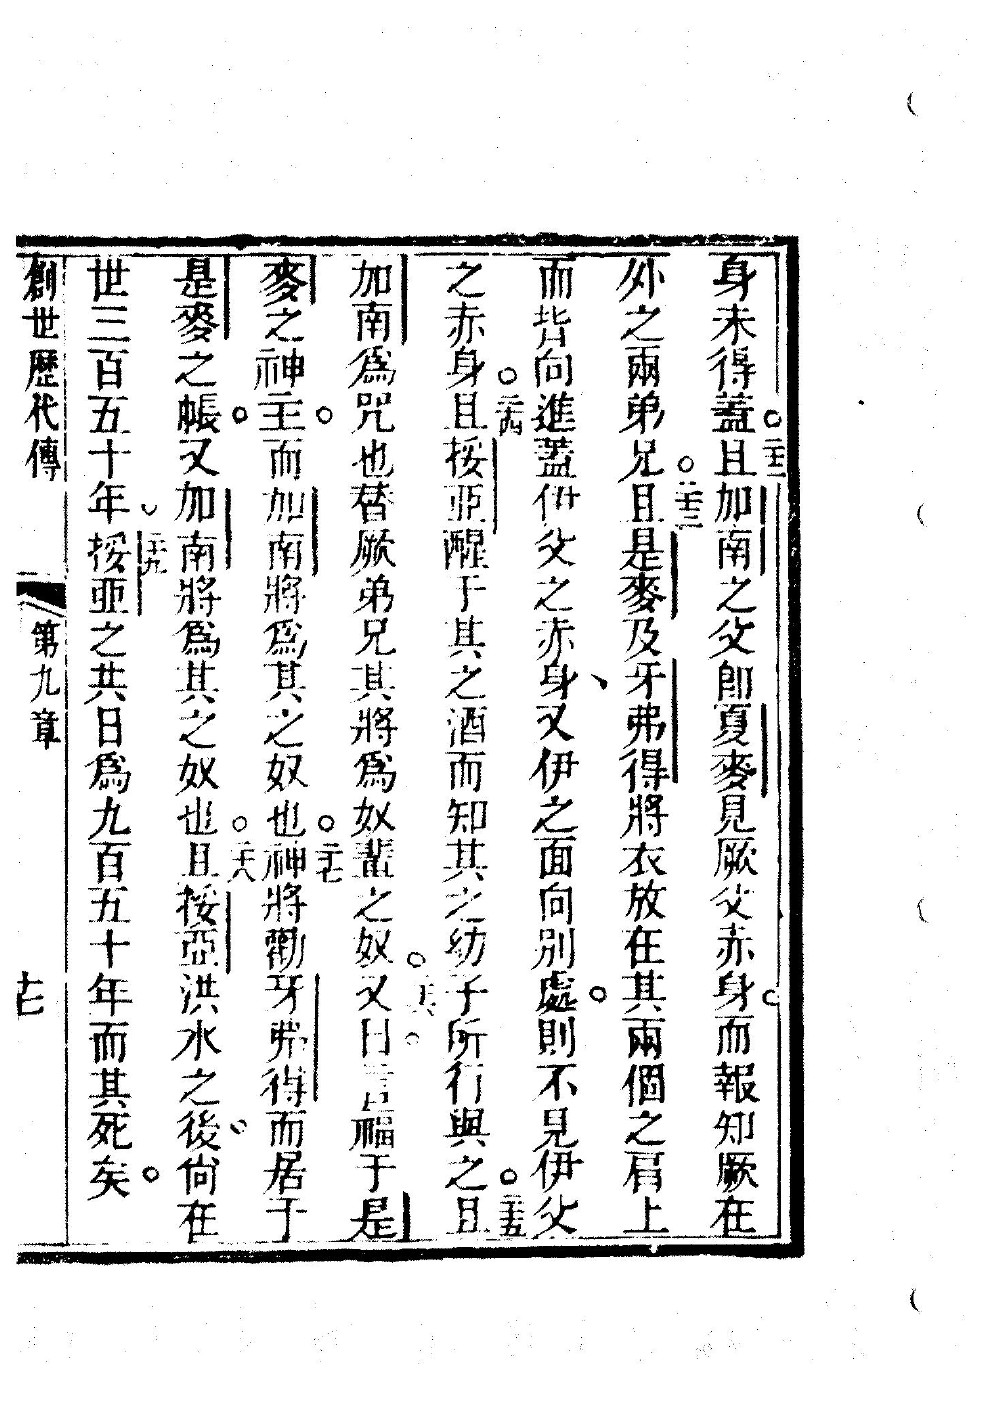 身未得蓋。二十二且加南之父卽夏麥見厥父赤身。而報知厥在
外之兩弟兄。二十三且是麥及牙弗得將衣放在其兩個之肩上
而背向進蓋伊父之赤身、又伊之面向別處。則不見伊父
之赤身。二十四且挼亞醒于其之酒而知其之幼子所行與之。二十五且
加南爲咒也替厥弟兄其將爲奴輩之奴。二十六又曰。言福于是
麥之神主。而加南將爲其之奴也。二十七神將勸牙弗得而居于
是麥之帳。又加南將爲其之奴也。二十八且挼亞洪水之後、尙在
世三百五十年、二十九挼亞之共日爲九百五十年而其死矣。
創世歷代傳 第九章 十七